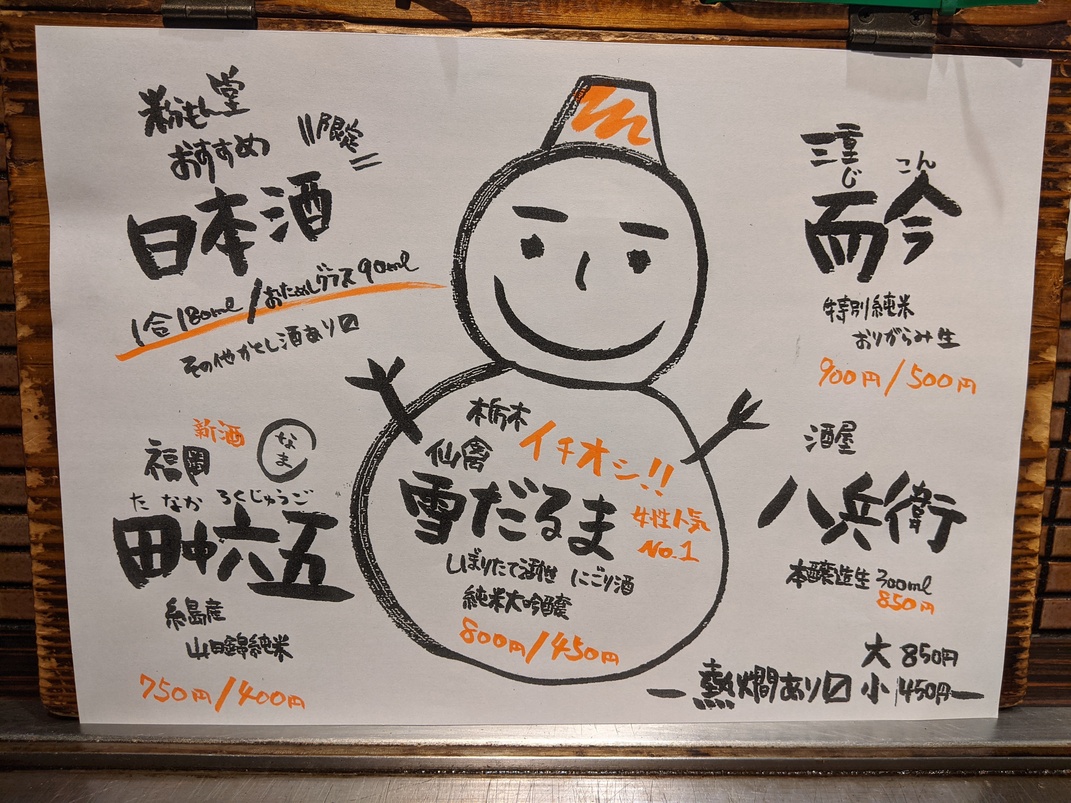 粉もん堂
おすすめ
限定
日本酒
1合180ml/おためしグラス90ml
その他かくし酒あり〼
新酒
なま
福岡
たなかろくじゅうご
田中六五
糸島産
山田錦純米
750円/400円
栃木
仙禽
イチオシ!!
雪だるま
女性人気
No.1
しぼりたて活性にごり酒
純米大吟醸
800円/450円
三重
じ こん
而今
特別純米
おりがらみ生
900円/500円
酒屋
八兵衛
本醸造生300ml
850円
大850円
熱燗あり〼 小450円